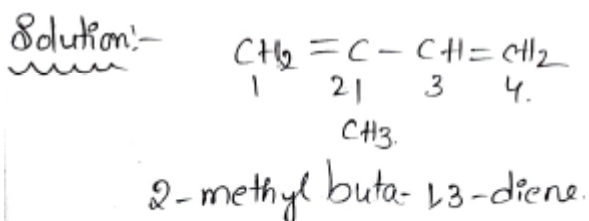 Solution:-
CH2=C-CH=CH2
1 2 3 4.
CH3.
2-methyl buta-1,3-diene.